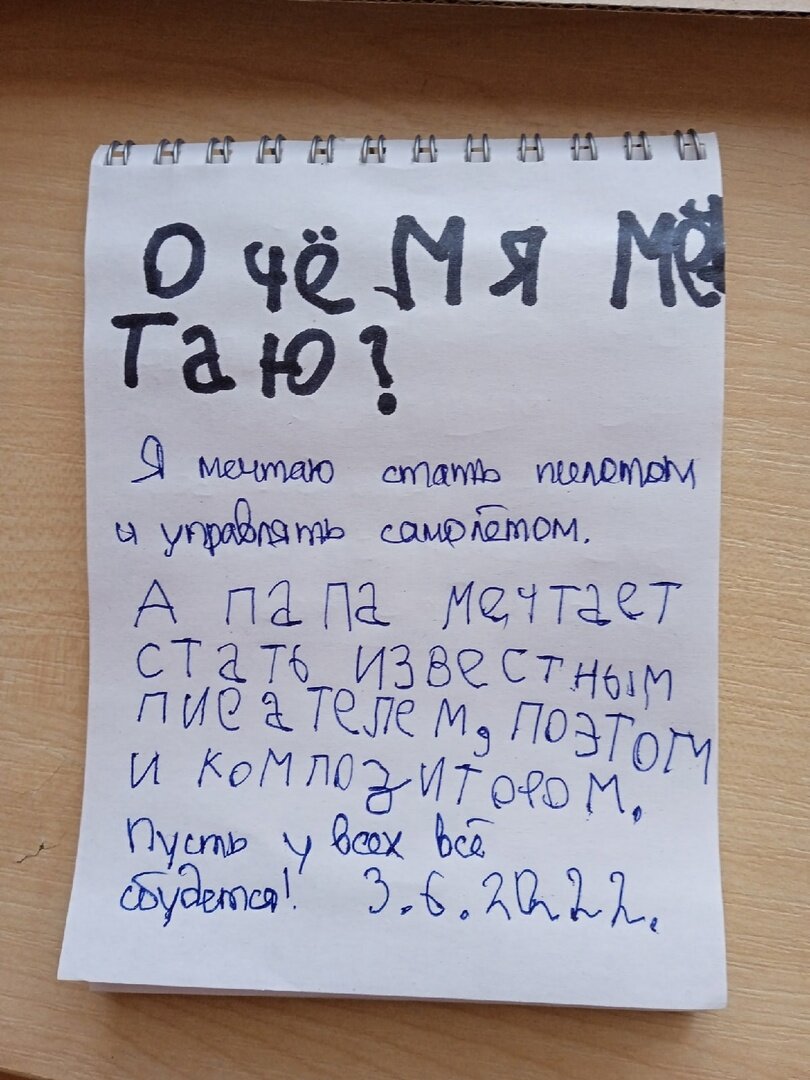 О чём я мё
таю?
Я мечтаю стать пилотом
и управлять самолётом.
А папа мечтает
стать известным
писателем, поэтом
и композитором.
Пусть у всех всё
сбудется! 3.6.2022.